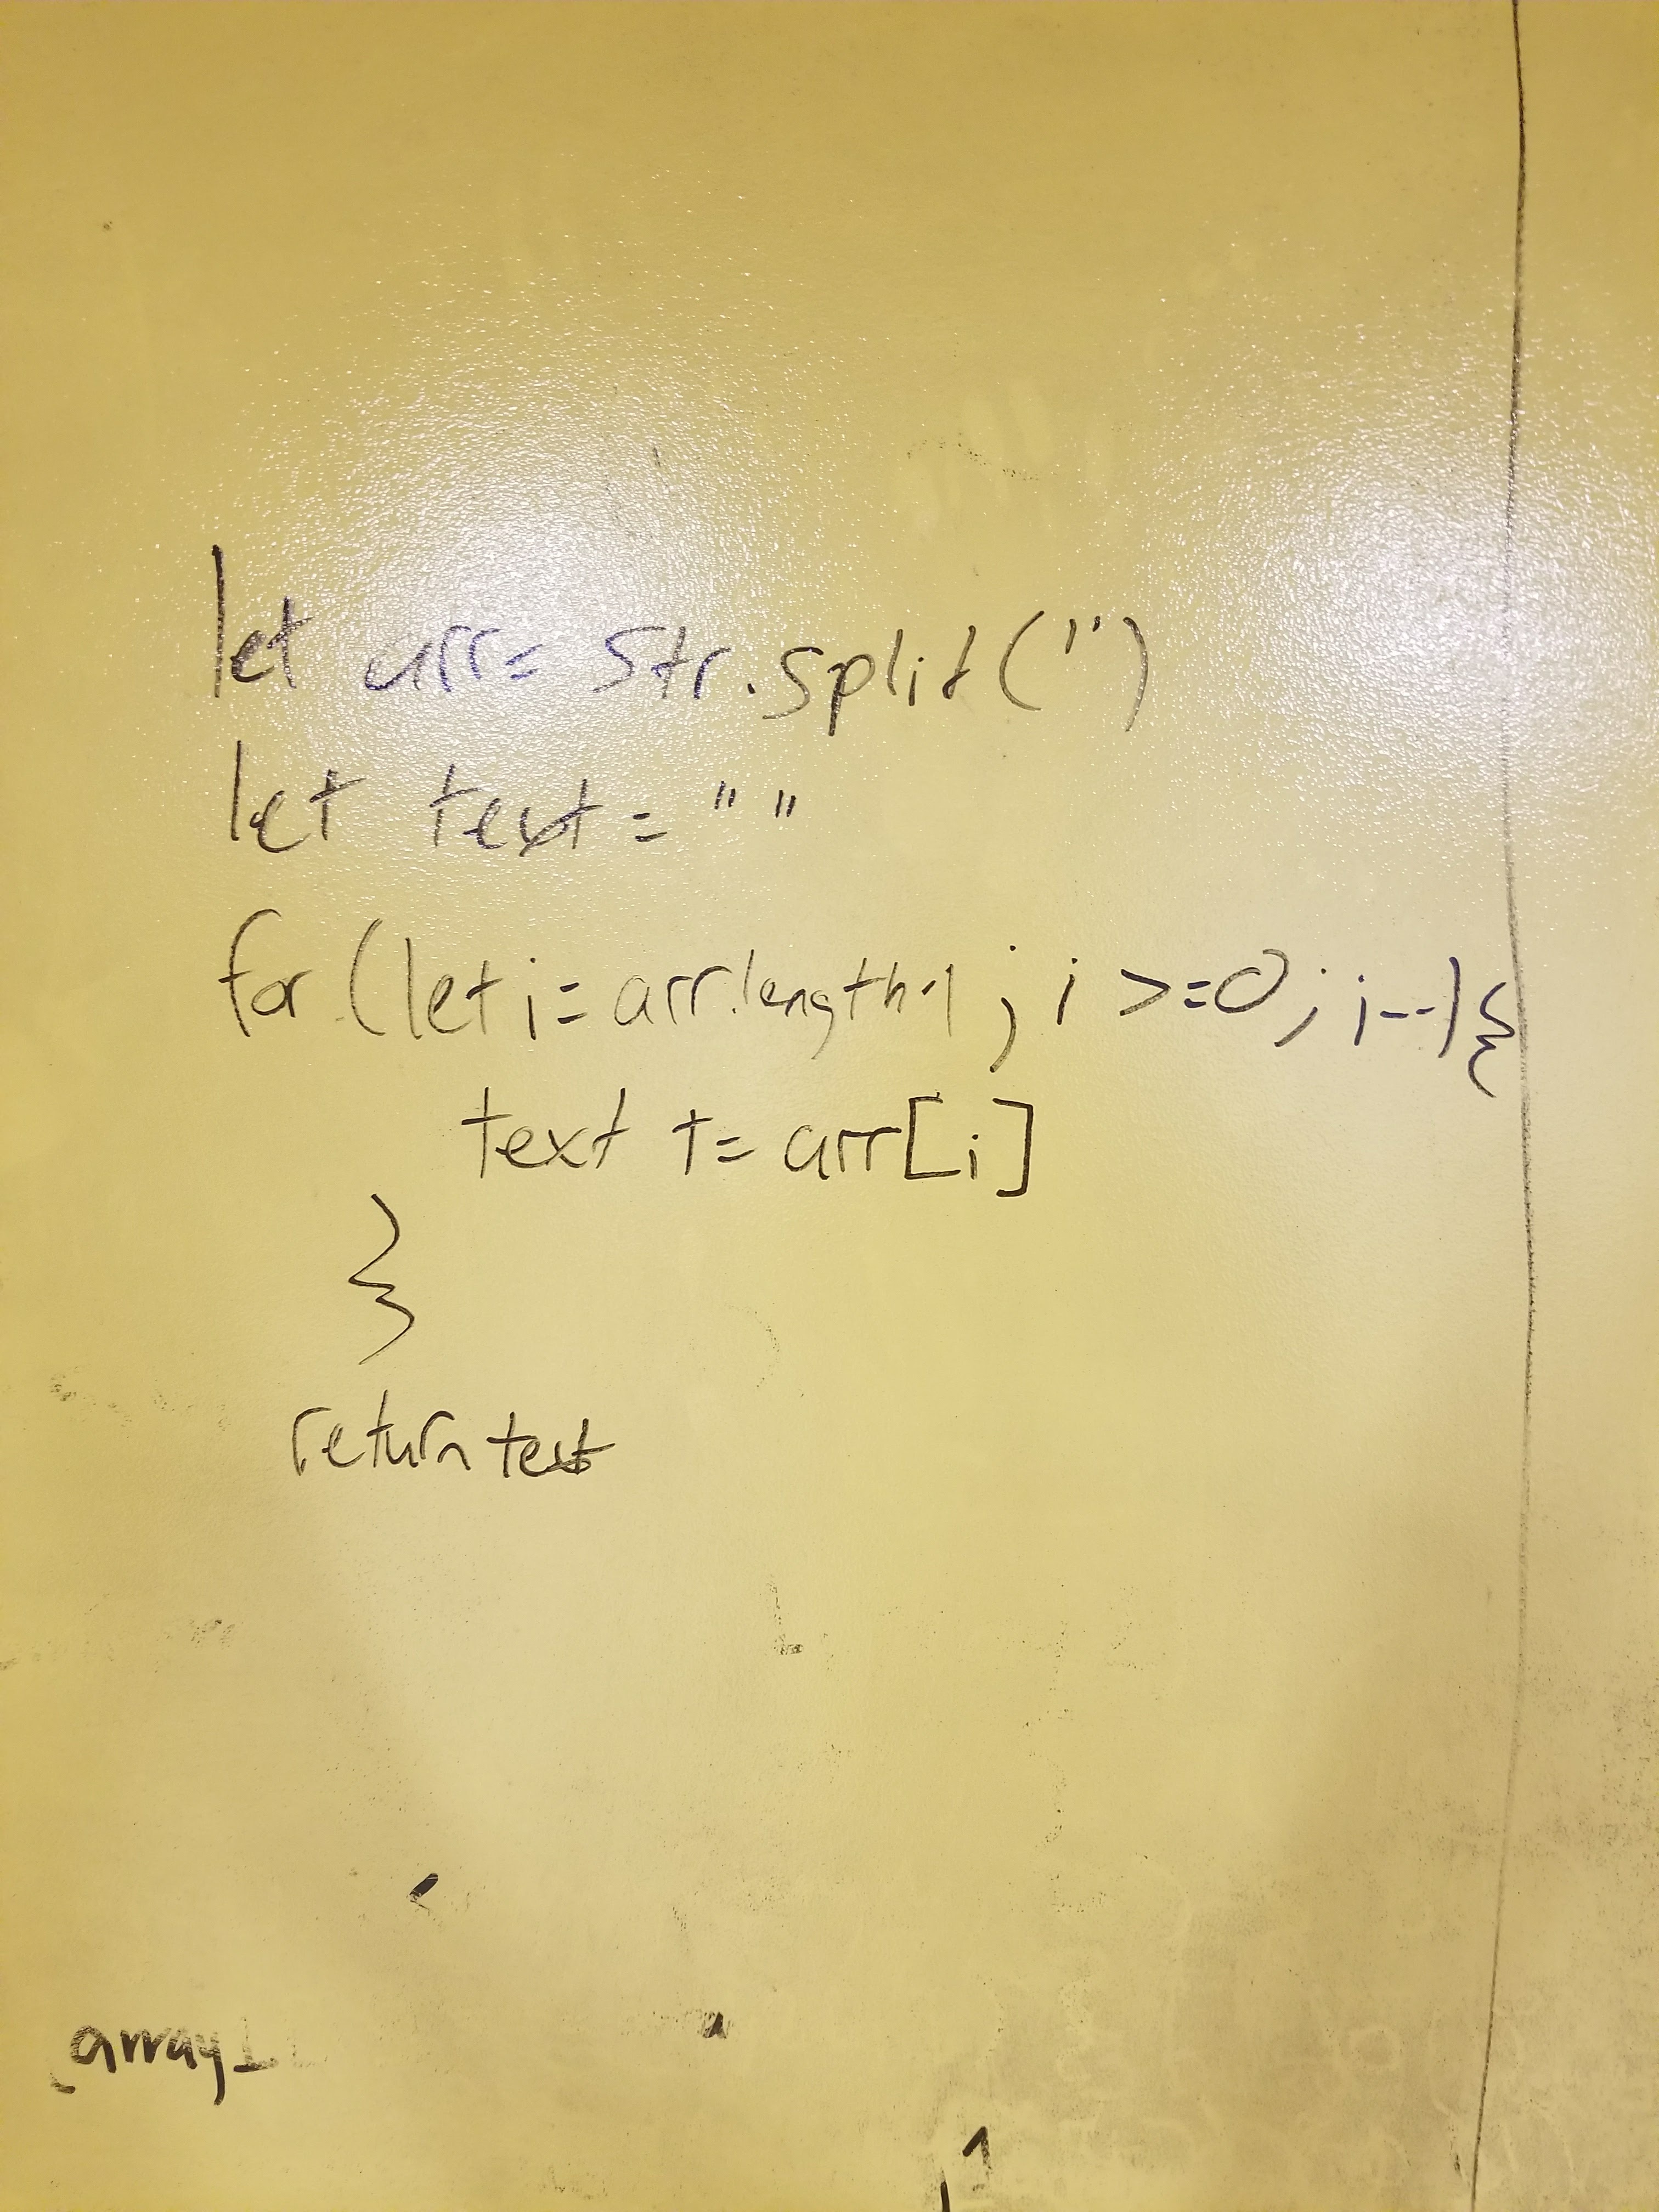 let arr= str.split('')
let text = " "
for (let i= arr.length-1 ; i >=0; i--){
text += arr[i]
}
return text
array